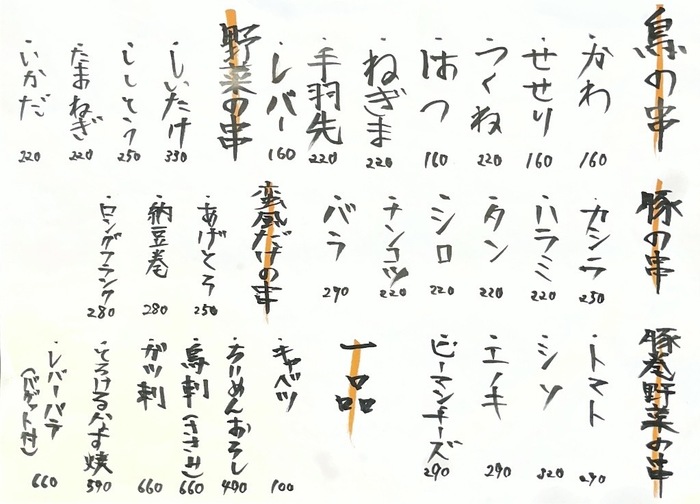 鳥の串
・かわ 160
・せせり 160
・つくね 220
・はつ 160
・ねぎま 220
・手羽先 220
・レバー 160
野菜の串
・しいたけ 330
・ししとう 250
・たまねぎ 220
・いかだ 220
豚の串
・カシラ 250
・ハラミ 220
・タン 220
・シロ 220
・ナンコツ 220
・バラ 290
蛮風だけの串
・あげとろ 250
・納豆巻 280
・ロングフランク 280
豚巻野菜の串
・トマト 290
・シソ 320
・エノキ 290
・ピーマンチーズ 290
一品
・キャベツ 100
・ちりめんおろし 490
・馬刺(ささみ) 660
・ガツ刺 660
・とろけるかます焼 590
・レバーパテ
(バゲット付) 660